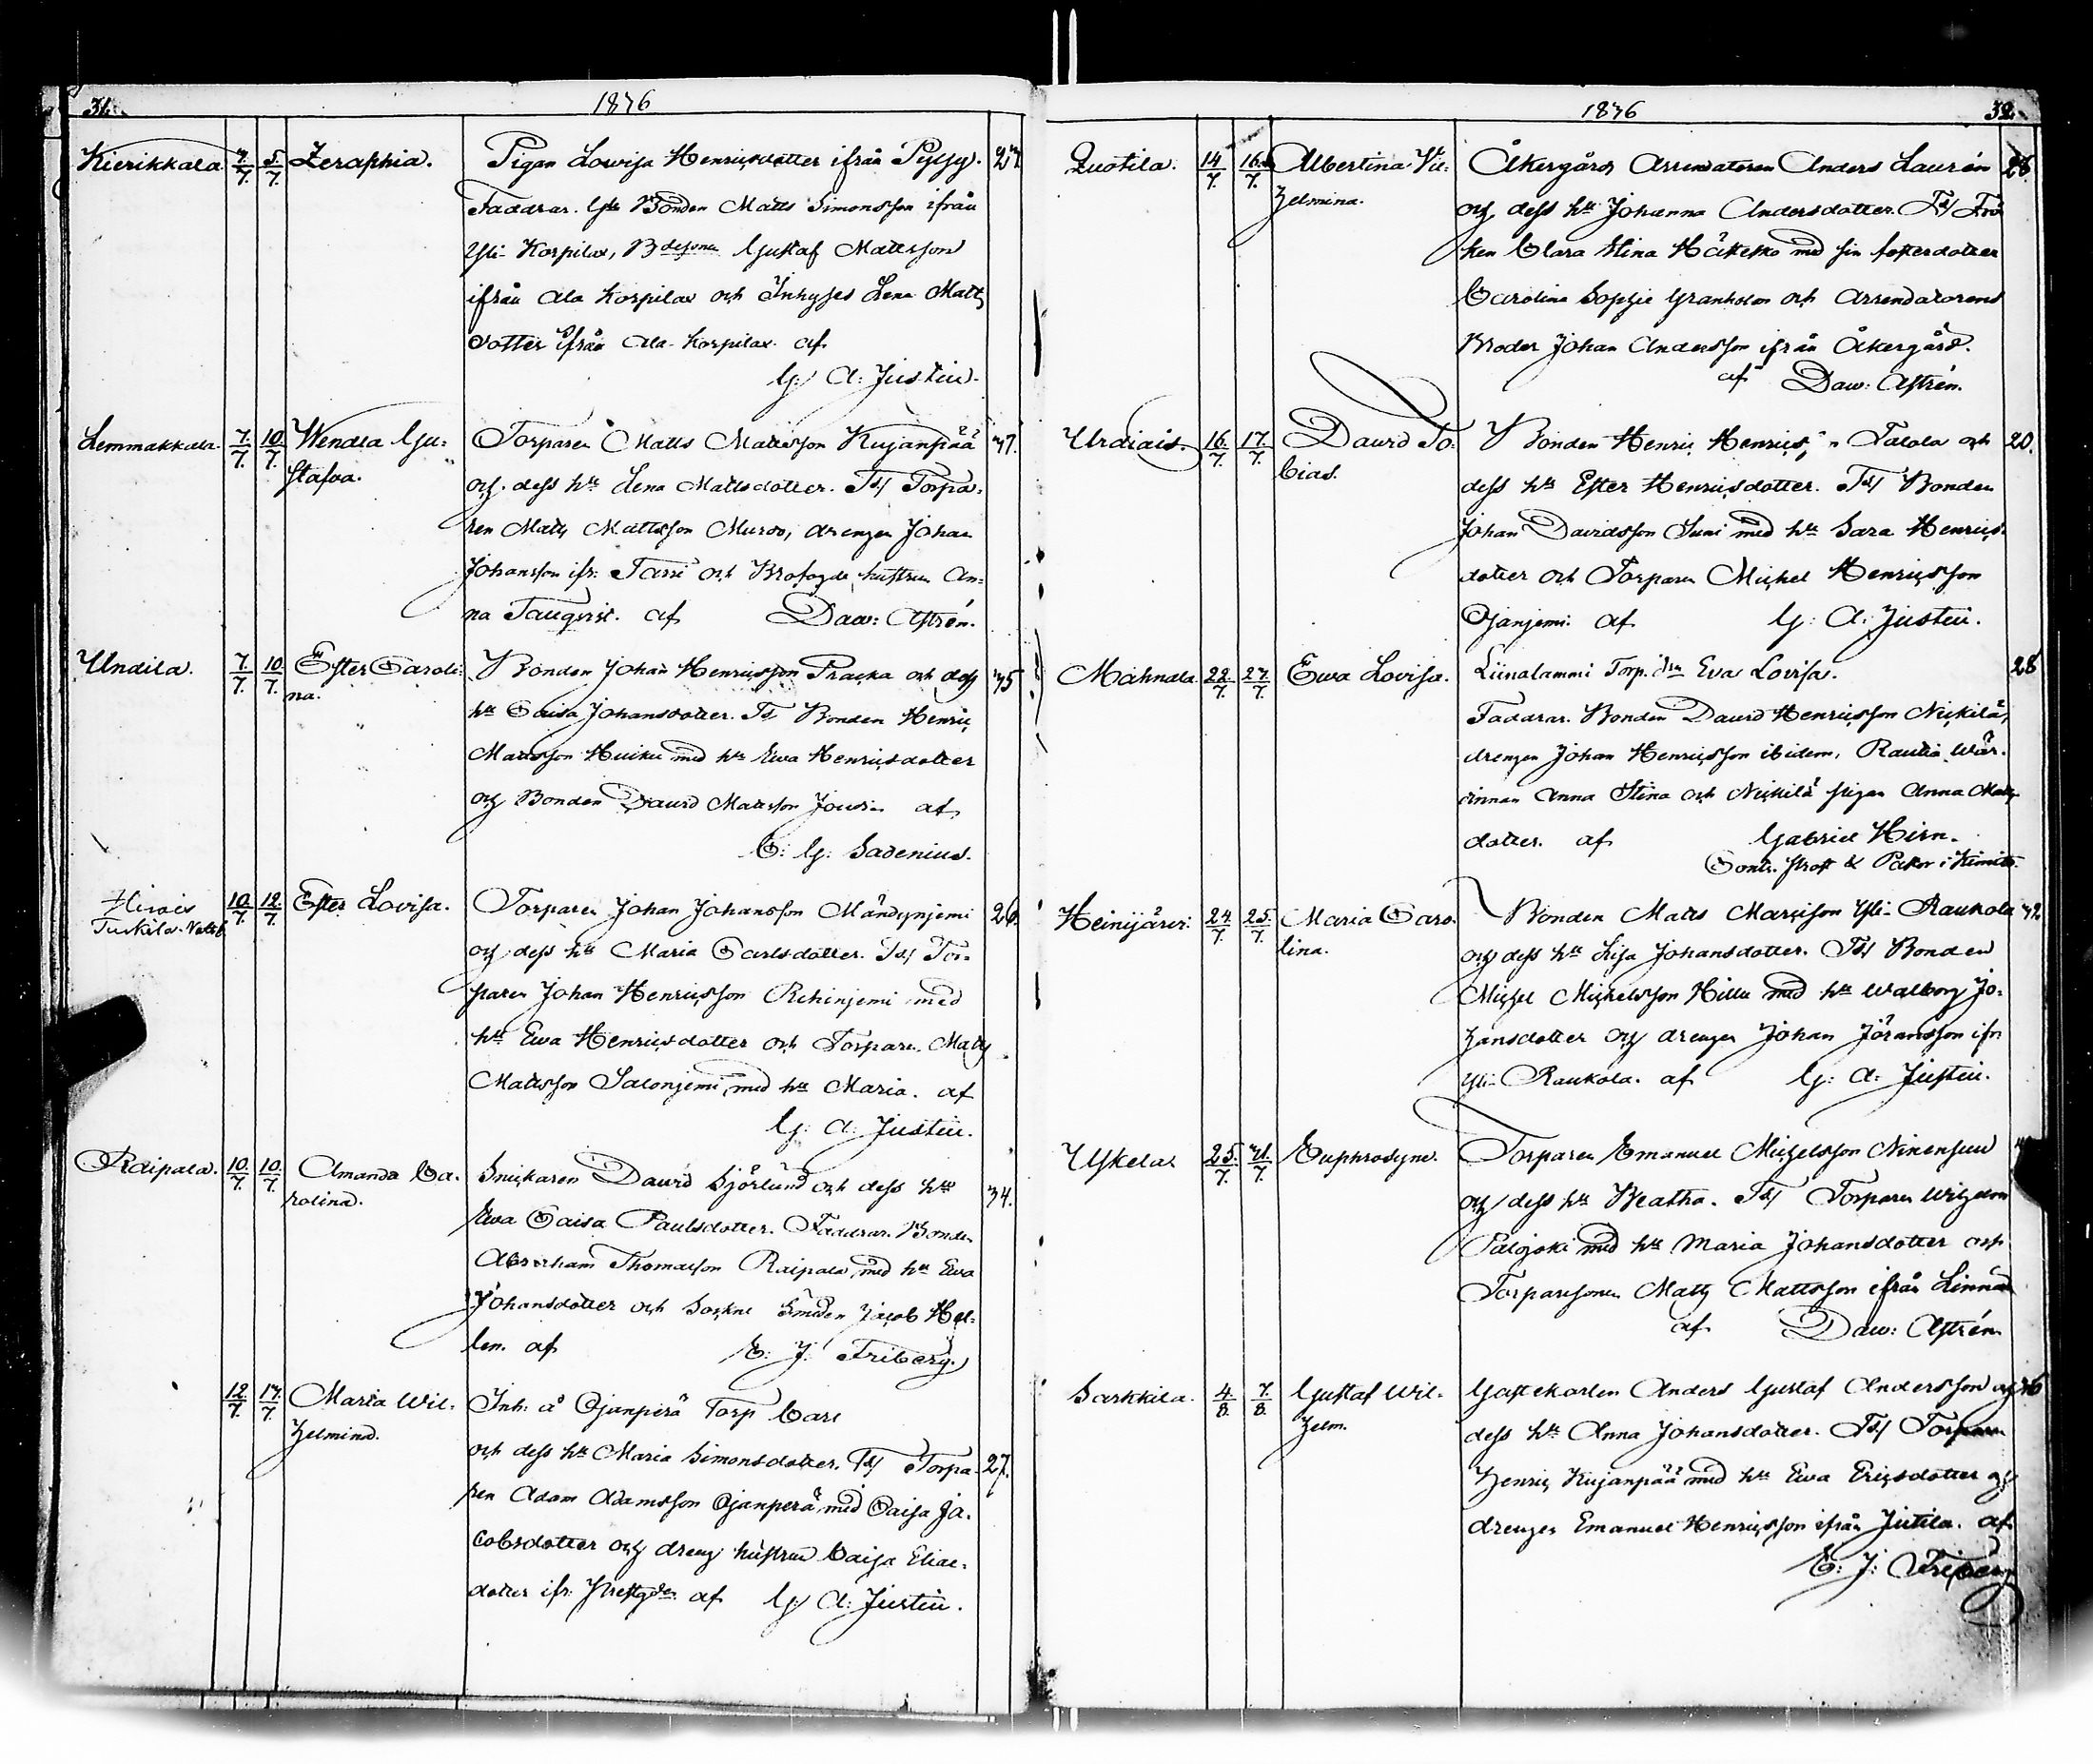 31.
1836
Kierikkala. 4/7. 5/7. Zeraphia. Pigan Lovisa Henricsdotter ifrån 27.
Faddrar. Gle Bonden Matts Simonsson ifrån
Yli-Korpilax, Bdesonen Gustaf Mattsson
ifrån Ala Korpilax och Inhyses Lena Matts
dotter ifrån Ala-Korpilax. af
G: A: Justin.
Lemmakkala. 7/7. 10/7. Wendla Gu: Torparen Matts Mattsson Kujanpää 37.
stafva. och dess hu Lena Mattsdotter. Fd/ Torpa,
ren Matts Mattsson Muroo, drengen Johan
Johansson ifr: Tarri och Brofogde hustrun An:
na Tauqvist. af Daw: Astrén.
Undila. 7/7. 10/7. Ester Caroli: Bonden Johan Henricsson Pracka och dess 35
na. hu Caisa Johansdotter. Fd Bonden Henric
Mattsson Huiku med hu Ewa Henricsdotter
och Bonden David Mattsson af
C: G: Sadenius.
Hirvois 10/7. 12/7. Ester Lovisa. Torparen Johan Johansson Mändynjemi 26.
Tuskila. och dess hu Maria Carlsdotter. Fd/ Tor-
paren Johan Henricsson Rihinjemi med
hu Ewa Henricsdotter och Torparen Matts
Mattsson Salonjemi, med hu Maria. af
G: A: Justin.
Raipala. 10/7. 10/7. Amanda Ca: Snickaren David Sjörlund och dess hu 34.
rolina. Ewa Caisa Paulsdotter. Faddrar. Bonden
Abraham Thomasson Raipala, med hu Ewa
Johansdotter och Sockne Smeden Jacob Hel:
len. af E: J: Friberg.
12/7. 17/7. Maria Wil: Inh: å Ojanperä Torp Carl
helmina. och dess hu Maria Simonsdotter. Fd/ Torpa- 27.
ren Adam Adamsson Ojanperä, med Caisa Ja:
cobsdotter och dreng hustrun Caisa Elias-
dotter ifr: af G: A: Justin.
1836
32.
Quotila. 14/7. 16/7. Albertina Vil: Åkergårds Arrendatoren Anders Laurén 28.
helmina. och dess hu Johanna Andersdotter. Fd/ Frö
ken Clara Stina Hästesko med sin fosterdotter
Carolina Sophie Granholm och Arrendatorens
Broder Johan Andersson ifrån Åkergård.
af Daw: Astrén.
Urdiais. 16/7. 17/7. David To: Bonden Henric Henrics: n Talola och 20.
bias. dess hu Ester Henricsdotter. Fd/ Bonden
Johan Davidsson Suni med hu Sara Henrics-
dotter och Torparen Michel Henricsson
Ojanjemi. af G: A: Justin.
Mahnala. 22/7. 27/7. Ewa Lovisa. Liinalammi Torp. Eva Lovisa. 28
Faddrar. Bonden David Henricsson Nickilä,
drengen Johan Henricsson ibidem, Rautia Wär-
dinnan Anna Stina och Nickilä pigan Anna Matts
dotter. af Gabriel Hirn.
Contr. Prost & Pastor i Kimito.
Heinijärvi. 24/7. 25/7. Maria Caro: Bonden Matts Marcisson Yli-Raukola 32
lina. och dess hu Lisa Johansdotter. Fd/ Bonden
Michel Michelsson Hillu med hu Walborg Jo:
hansdotter och drengen Johan Jöransson ifr
Yli-Raukola. af G: A: Justin.
Uskela 25/7. 31/7. Euphrosyne. Torparen Emanuel Michelsson Ninensuu
och dess hu Beatha. Fd/ Torparen Wilhelm
Palojoki med hu Maria Johansdotter och
Torparsonen Matts Mattsson ifrån Linnais
af Daw: Astrén.
Sarkkila. 4/8. 7/8. Gustaf Wil- Gästekarlen Anders Gustaf Andersson och 36
helm. dess hu Anna Johansdotter. Fd/ Torparen
Henric Kujanpää med hu Ewa Ericsdotter och
drengen Emanuel Henricsson ifrån Jutila. af
E: J: Friberg